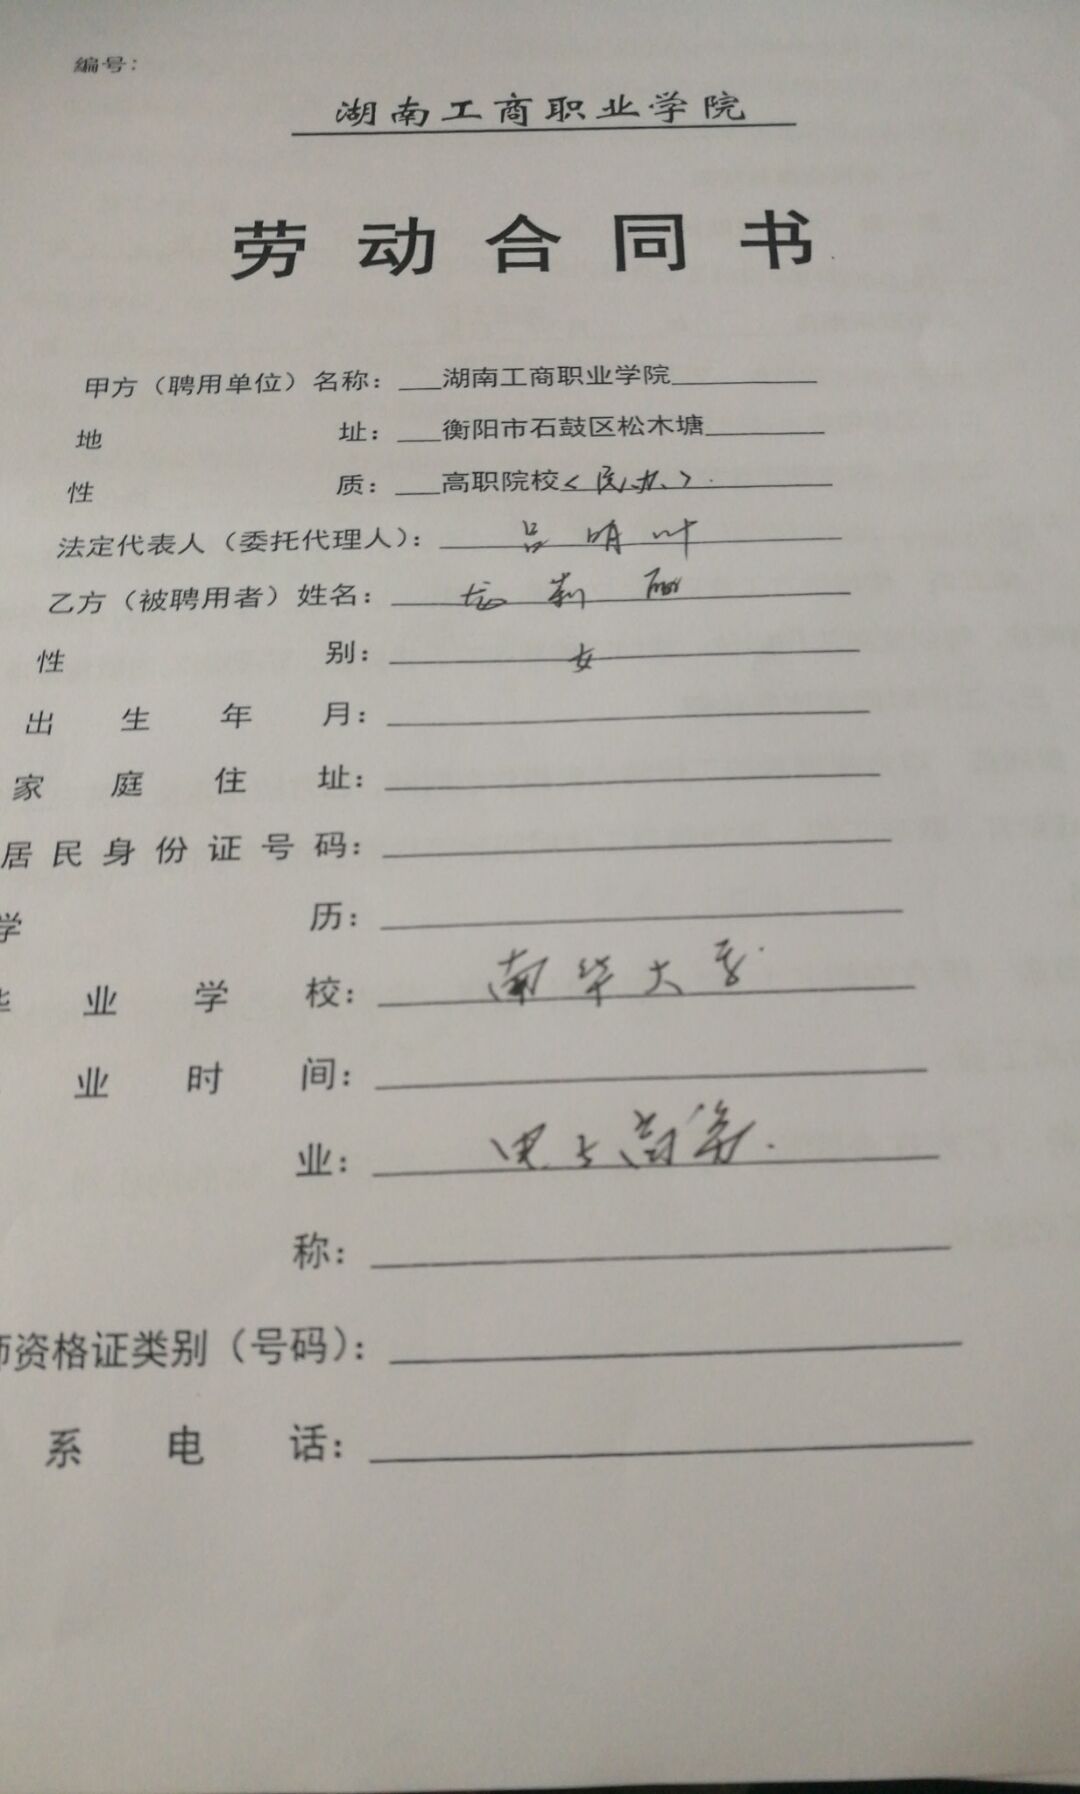 编号：
湖南工商职业学院
劳动合同书
甲方（聘用单位）名称：湖南工商职业学院
地址：衡阳市石鼓区松木塘
性质：高职院校（民办）
法定代表人（委托代理人）：吕明叶
乙方（被聘用者）姓名：龙莉丽
性别：女
出生年月：
家庭住址：
居民身份证号码：
学历：
毕业学校：南华大学
业时间：
业：电子商务
称：
师资格证类别（号码）：
系电话：